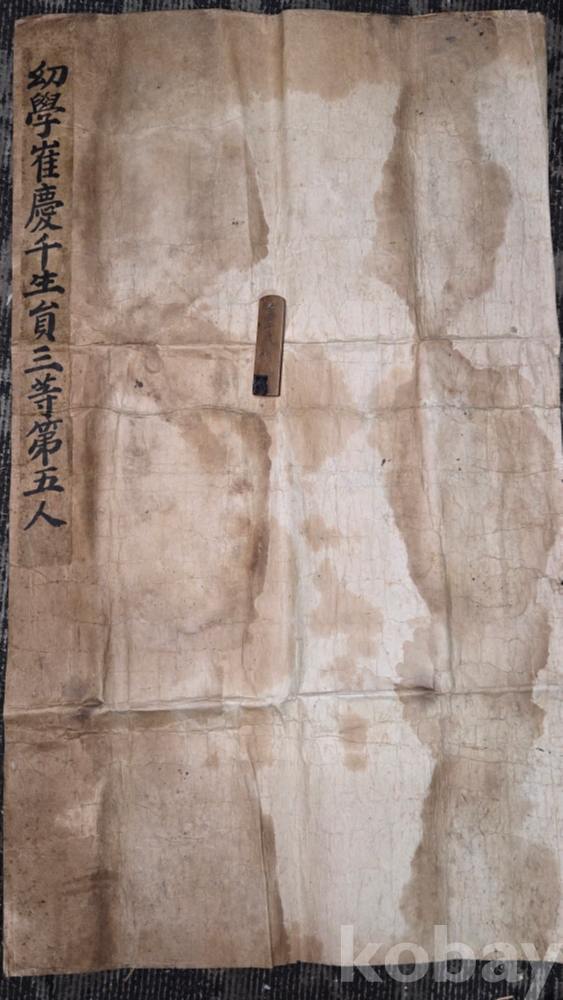 幼學崔慶千生員三等第五人
kobay